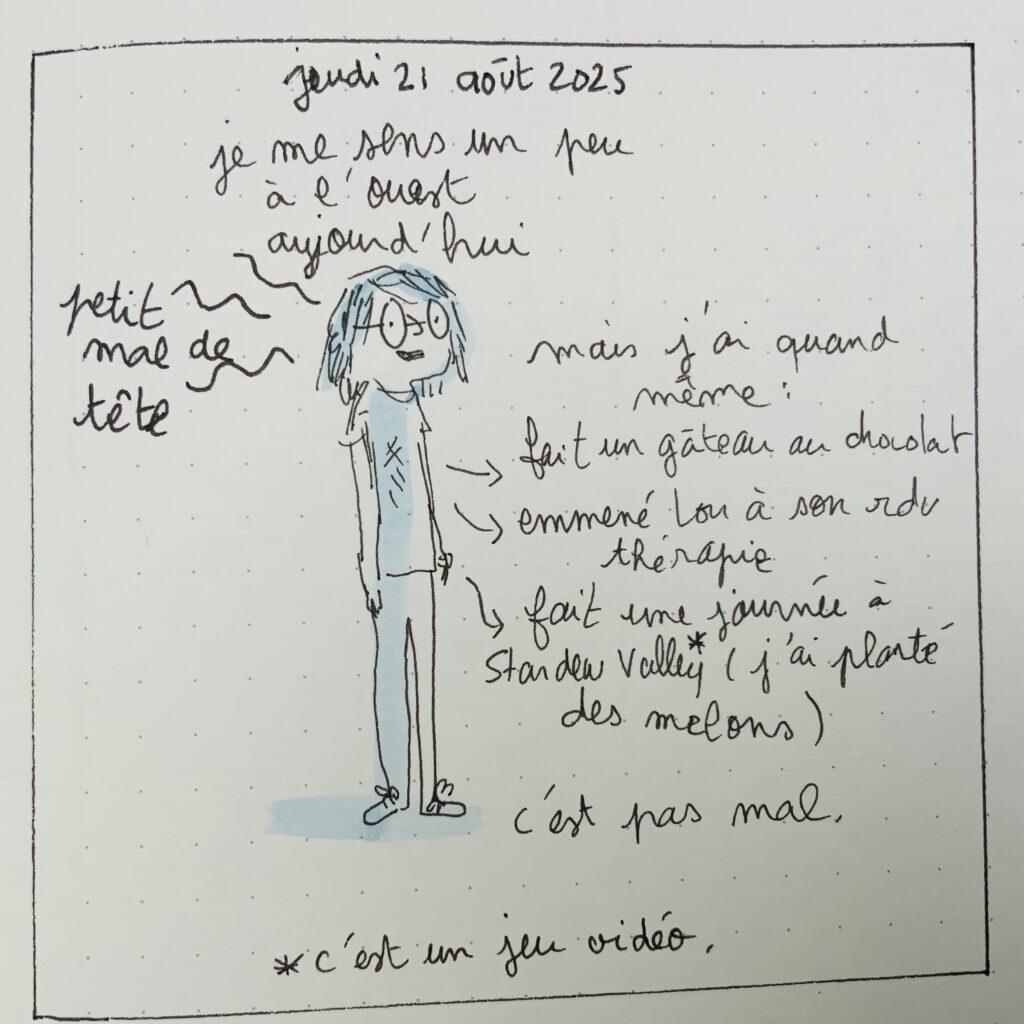 jeudi 21 août 2025
je me sens un peu
à l'ouest
aujourd'hui
petit
mal de
tête
mais j'ai quand
même :
→ fait un gâteau au chocolat
→ emmené Lou à son rdv
thérapie
→ fait une journée à
Stardew Valley* (j'ai planté
des melons)
c'est pas mal.
*c'est un jeu vidéo.